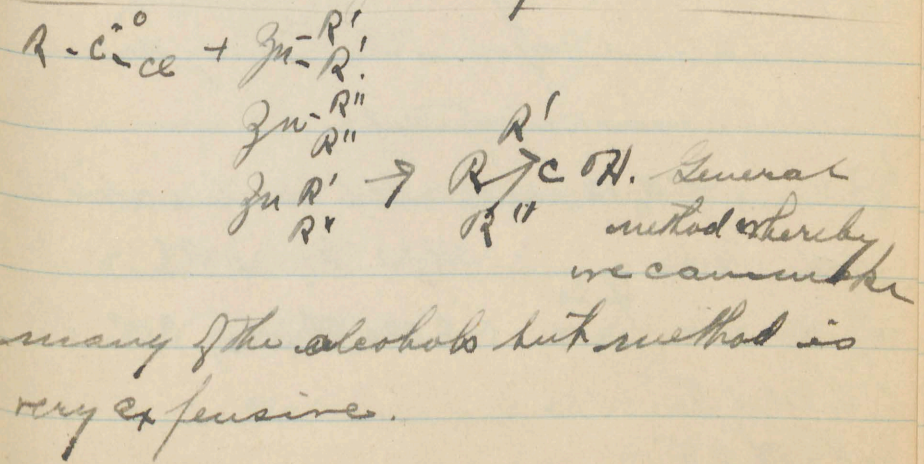 O
R - C - Cl + Zn - R'
R'
Zn - R''
R''
R'
Zn R' → R C OH. General
R'' R'' method whereby
we can make
many of the alcohols but method is
very expensive.